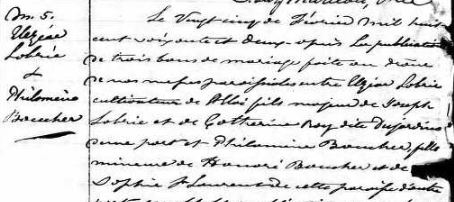 M. 5.
Elzéar
Labrie
&
Philomène
Boucher
Le Vingt cinq de Février mil huit
cent soixante et deux, après la publication
de trois bans de mariage faite au prône
de nos messes paroissiales entre Elzéar Labrie
cultivateur de fils majeur de Joseph
Labrie et de Catherine Roy dite Desjardins
d'une part et Philomène Boucher, fille
mineure de Honoré Boucher et de
Sophie St Laurent de cette paroisse d'autre